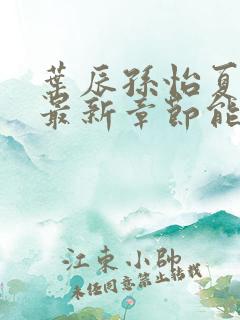 葉辰孫怡夏
最新章節能
江東小帥
未经同意禁止转载